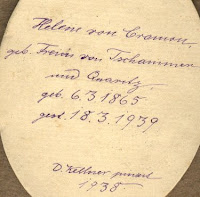 Helene von Cramon,
geb. Freiin von Tschammer
und Quaritz,
geb. 6.3.1865
gest. 18.3.1939
D. Kellner pinxit
1938